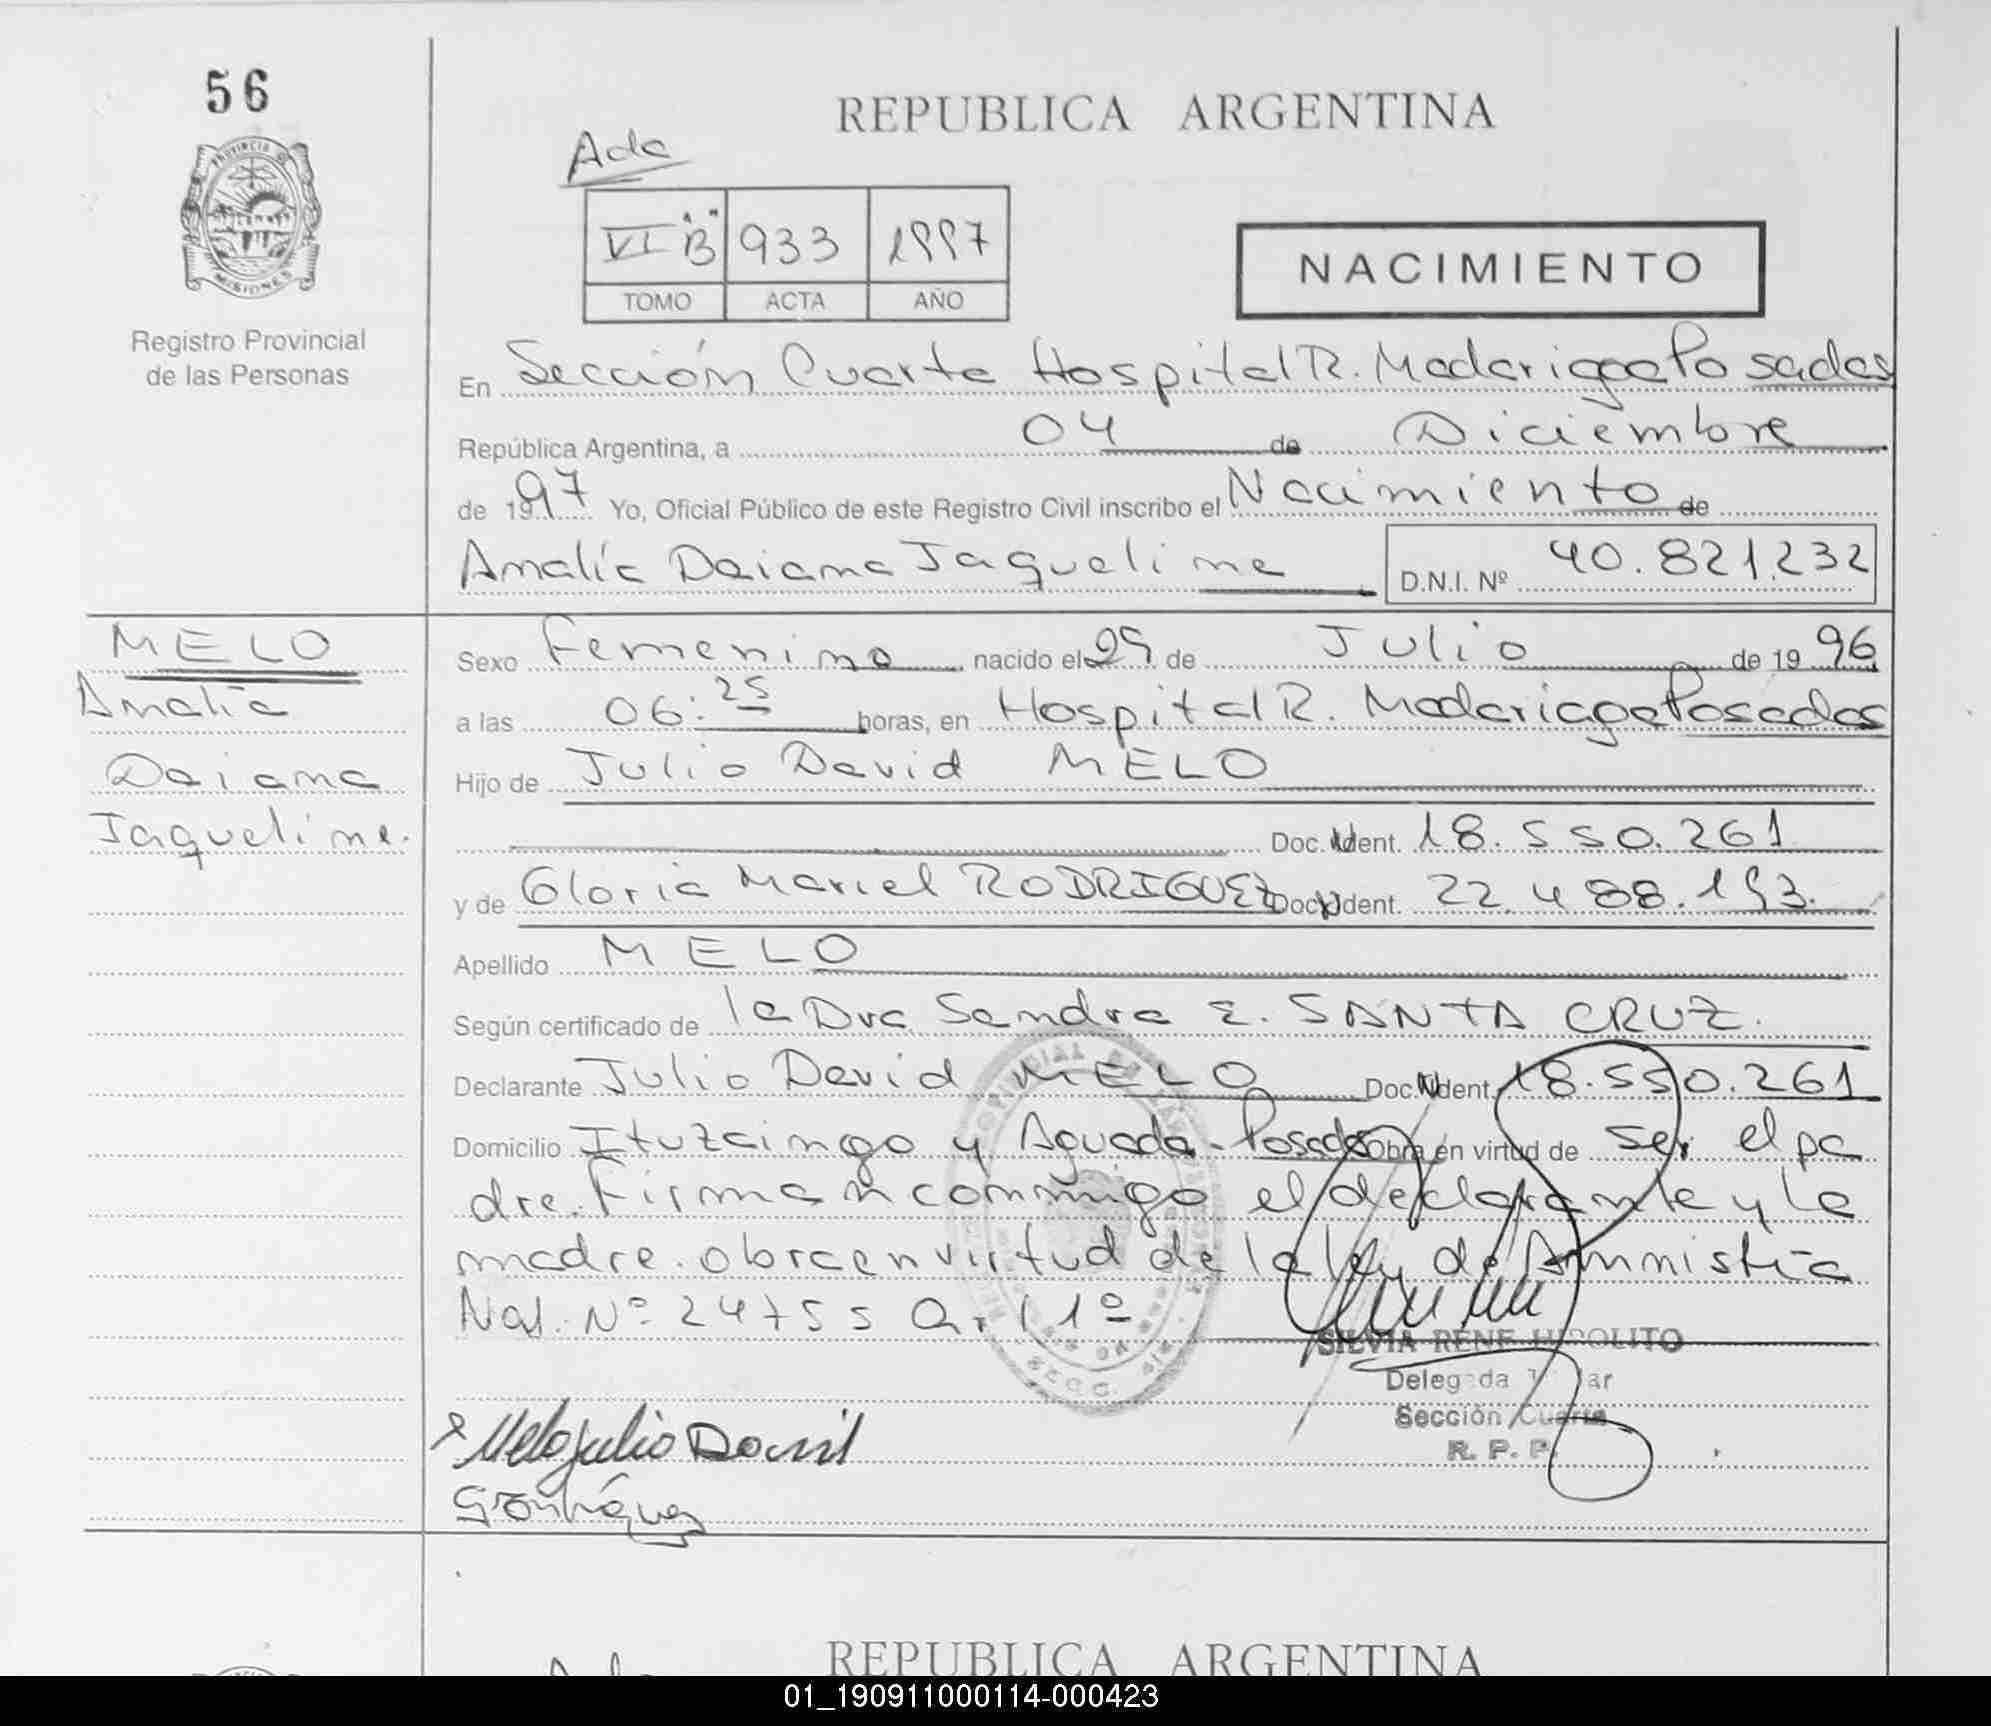 56
REPUBLICA ARGENTINA
PROVINCIA DE
MISIONES
Registro Provincial
de las Personas
Ada
VI "B" 933 1997
TOMO ACTA AÑO
NACIMIENTO
En Sección Cuarta Hospital R. Madariaga Posadas
República Argentina, a 04 de Diciembre
de 1997 Yo, Oficial Público de este Registro Civil inscribo el Nacimiento de
Amalia Daiana Jaqueline D.N.I. Nº 40.821.232
MELO
Amalia
Daiana
Jaqueline.
Sexo Femenino nacido el 29 de Julio de 1996
a las 06:25 horas, en Hospital R. Madariaga Posadas
Hijo de Julio David MELO
Doc. Ident. 18.550.261
y de Gloria Mariel RODRIGUEZ Doc. Ident. 22.488.193.
Apellido MELO
Según certificado de la Dra Sandra E. SANTA CRUZ.
Declarante Julio David MELO Doc. Ident. 18.550.261
Domicilio Ituzaingo y Aguado - Posadas Obra en virtud de ser el pa
dre. Firman conmigo el declarante y la
madre. obra en virtud de la ley de Amnistia
Nal. Nº 24755 Art 1º
SILVIA RENE HIPOLITO
Delegada Titular
Sección Cuarta
R. P. P.
Melo Julio David
REPUBLICA ARGENTINA
01_190911000114-000423